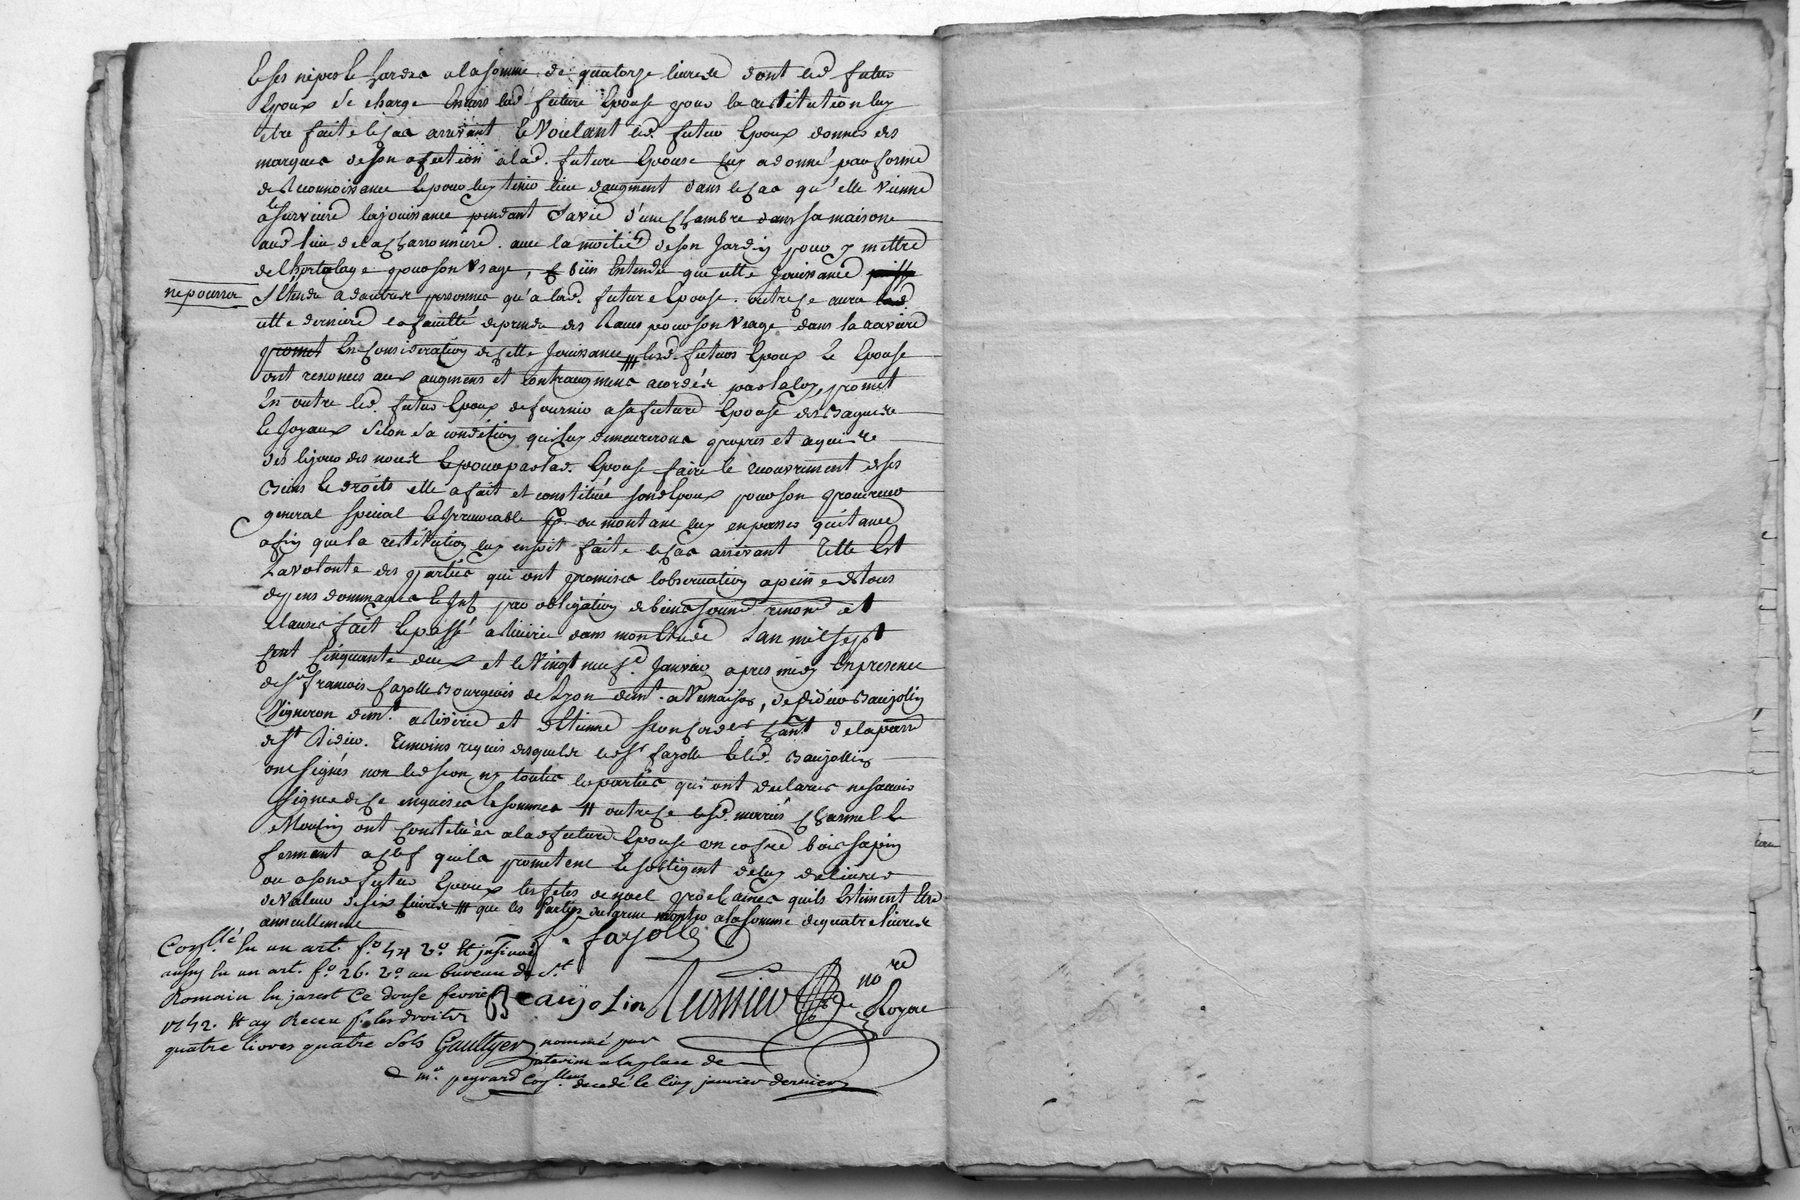 et ses nipes et hardes a la somme de quatorze livres dont led. futur
Epoux se charge Envers lad. future Epouse pour la restitution luy
etre faite le cas arrivant et voulant led. futur Epoux donner des
marques de son afection a lad. future Epouse luy a donné par forme
de Reconnoissance et pour luy tenir lieu daugment dans le cas qu'elle vienne
a le survivre la jouissance pendant sa vie d'une chambre dans sa maison
aud. lieu de la charronniere avec la moitié de son Jardin pour y mettre
de l'hortolage pour son usage, bien Entendu que cette Jouissance
ne pourra
s'Etendre a dautres personnes qu'a lad. future Epouse. outre ce aura
cette derniere la faculté de prendre des Raves pour son usage dans la raviere
promet En consideration de cette Jouissance lesd. futurs Epoux et Epouse
ont renoncés aux augments et contraugments acordés par la loy, promet
En outre led. futur Epoux de fournir a sa future Epouse des Bagues
et Joyaux selon sa condition qui luy demeureront propres et aquis
des le jour des noces et pour par lad. Epouse faire le recouvrement de ses
Biens et droits elle a fait et constitué sond. Epoux pour son procureur
general special et Irrevocable du montant luy en passer quitance
afin que la restitution luy en soit faite le cas arrivant Telle Est
La volonté des parties qui ont promises l'observation a peine de tous
depens dommages et Int. par obligation de biens soumis. renonc. et
clauses fait et passé a Riverie dans mon Etude Lan mil sept
cent Cinquante deux et le vingt neuf Janvier apres midy En presence
de Sr francois fayolle Bourgeois de Lyon demt. a venaison, de Didier Baujolin
vigneron demt. a Riverie et d'Etienne de la parr.
de St Didier. Temoins requis desquels led. Sr fayolle et led. Baujollin
ont signés non led. ny toutes les parties qui ont declarés ne savoir
signer de ce enquises et sommés # outre ce lesd. mariés et
Moulin ont constitués a lad. future Epouse un cofre bois sapin
fermant a clef quils promettent et s'obligent de luy delivrer
ou a sond. futur Epoux les fetes de noel prochaines quils Estiment Etre
de valeur de six livres # que les Parties declarent monter a la somme de quatre livres
annuellement
f. fayolle
Beaujolin
nore
Royal
Conllé lu un art. fo. 44 vo. et insinué
aussy lu un art. fo. 26. vo. au bureau de St.
Romain en jarest Ce douse fevrier
1752. et ay Receu p. les droits
quatre livres quatre sols Gaultyer nommé par
interim a la place de
me. peyrard decedé le Cinq janvier dernier